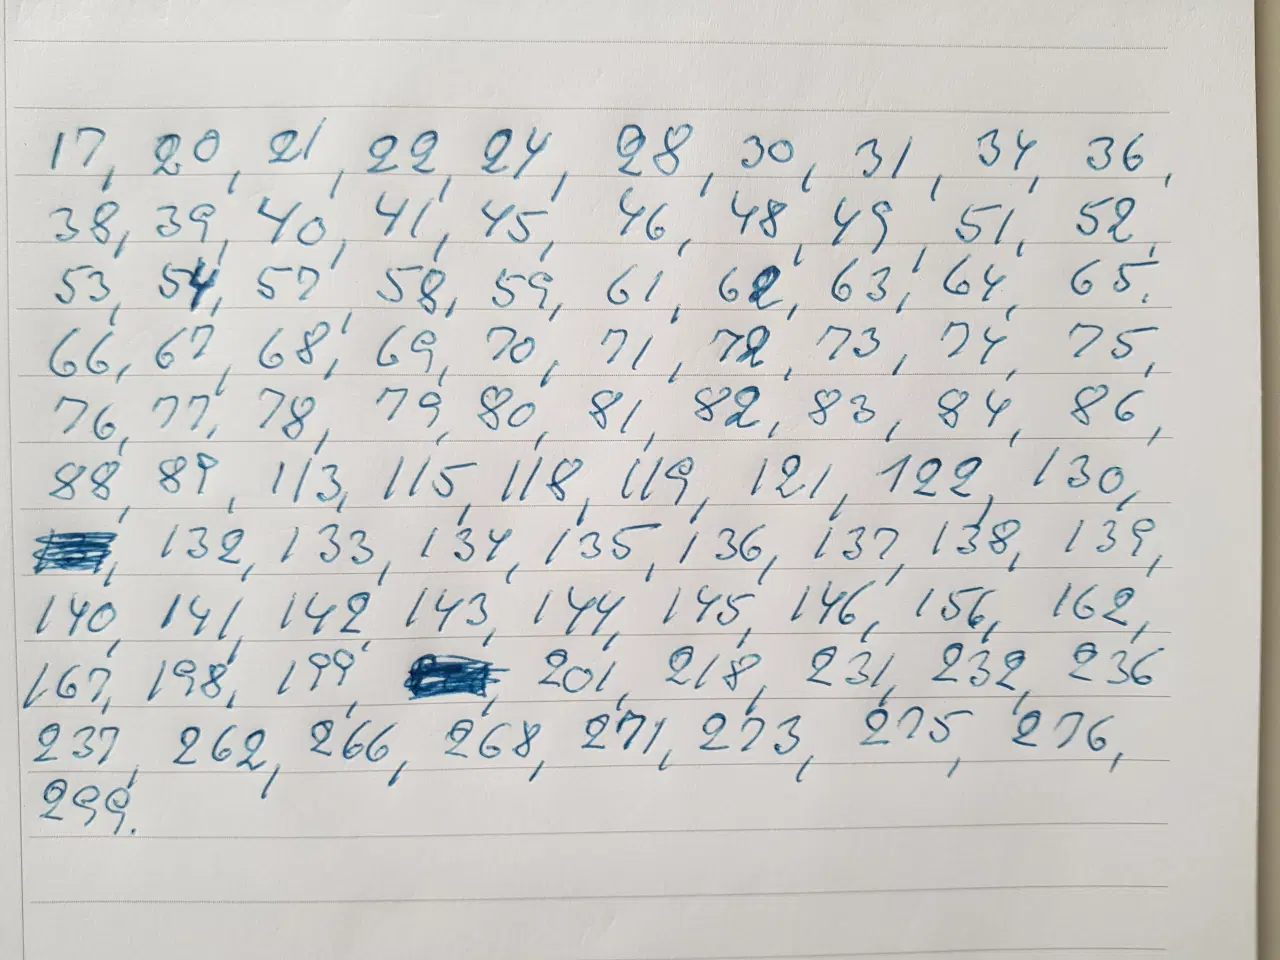 17, 20, 21, 22, 24, 28, 30, 31, 34, 36,
38, 39, 40, 41, 45, 46, 48, 49, 51, 52,
53, 54, 57, 58, 59, 61, 62, 63, 64, 65.
66, 67, 68, 69, 70, 71, 72, 73, 74, 75,
76, 77, 78, 79, 80, 81, 82, 83, 84, 86,
88, 89, 113, 115, 118, 119, 121, 122, 130,
, 132, 133, 134, 135, 136, 137, 138, 139,
140, 141, 142, 143, 144, 145, 146, 156, 162,
167, 198, 199, , 201, 218, 231, 232, 236
237, 262, 266, 268, 271, 273, 275, 276,
299.